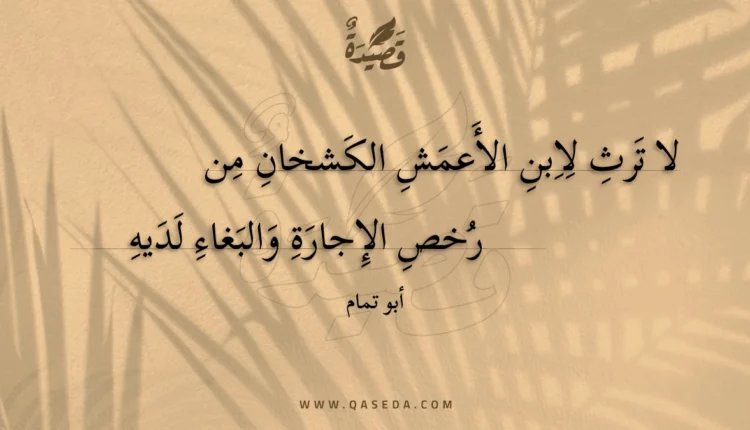 قَصِيْدَةٌ
لا تَرثِ لِاِبنِ الأَعمَشِ الكَشخانِ مِن
رُخصِ الإِجارَةِ وَالبَغاءِ لَدَيهِ
أبو تمام
WWW.QASEDA.COM